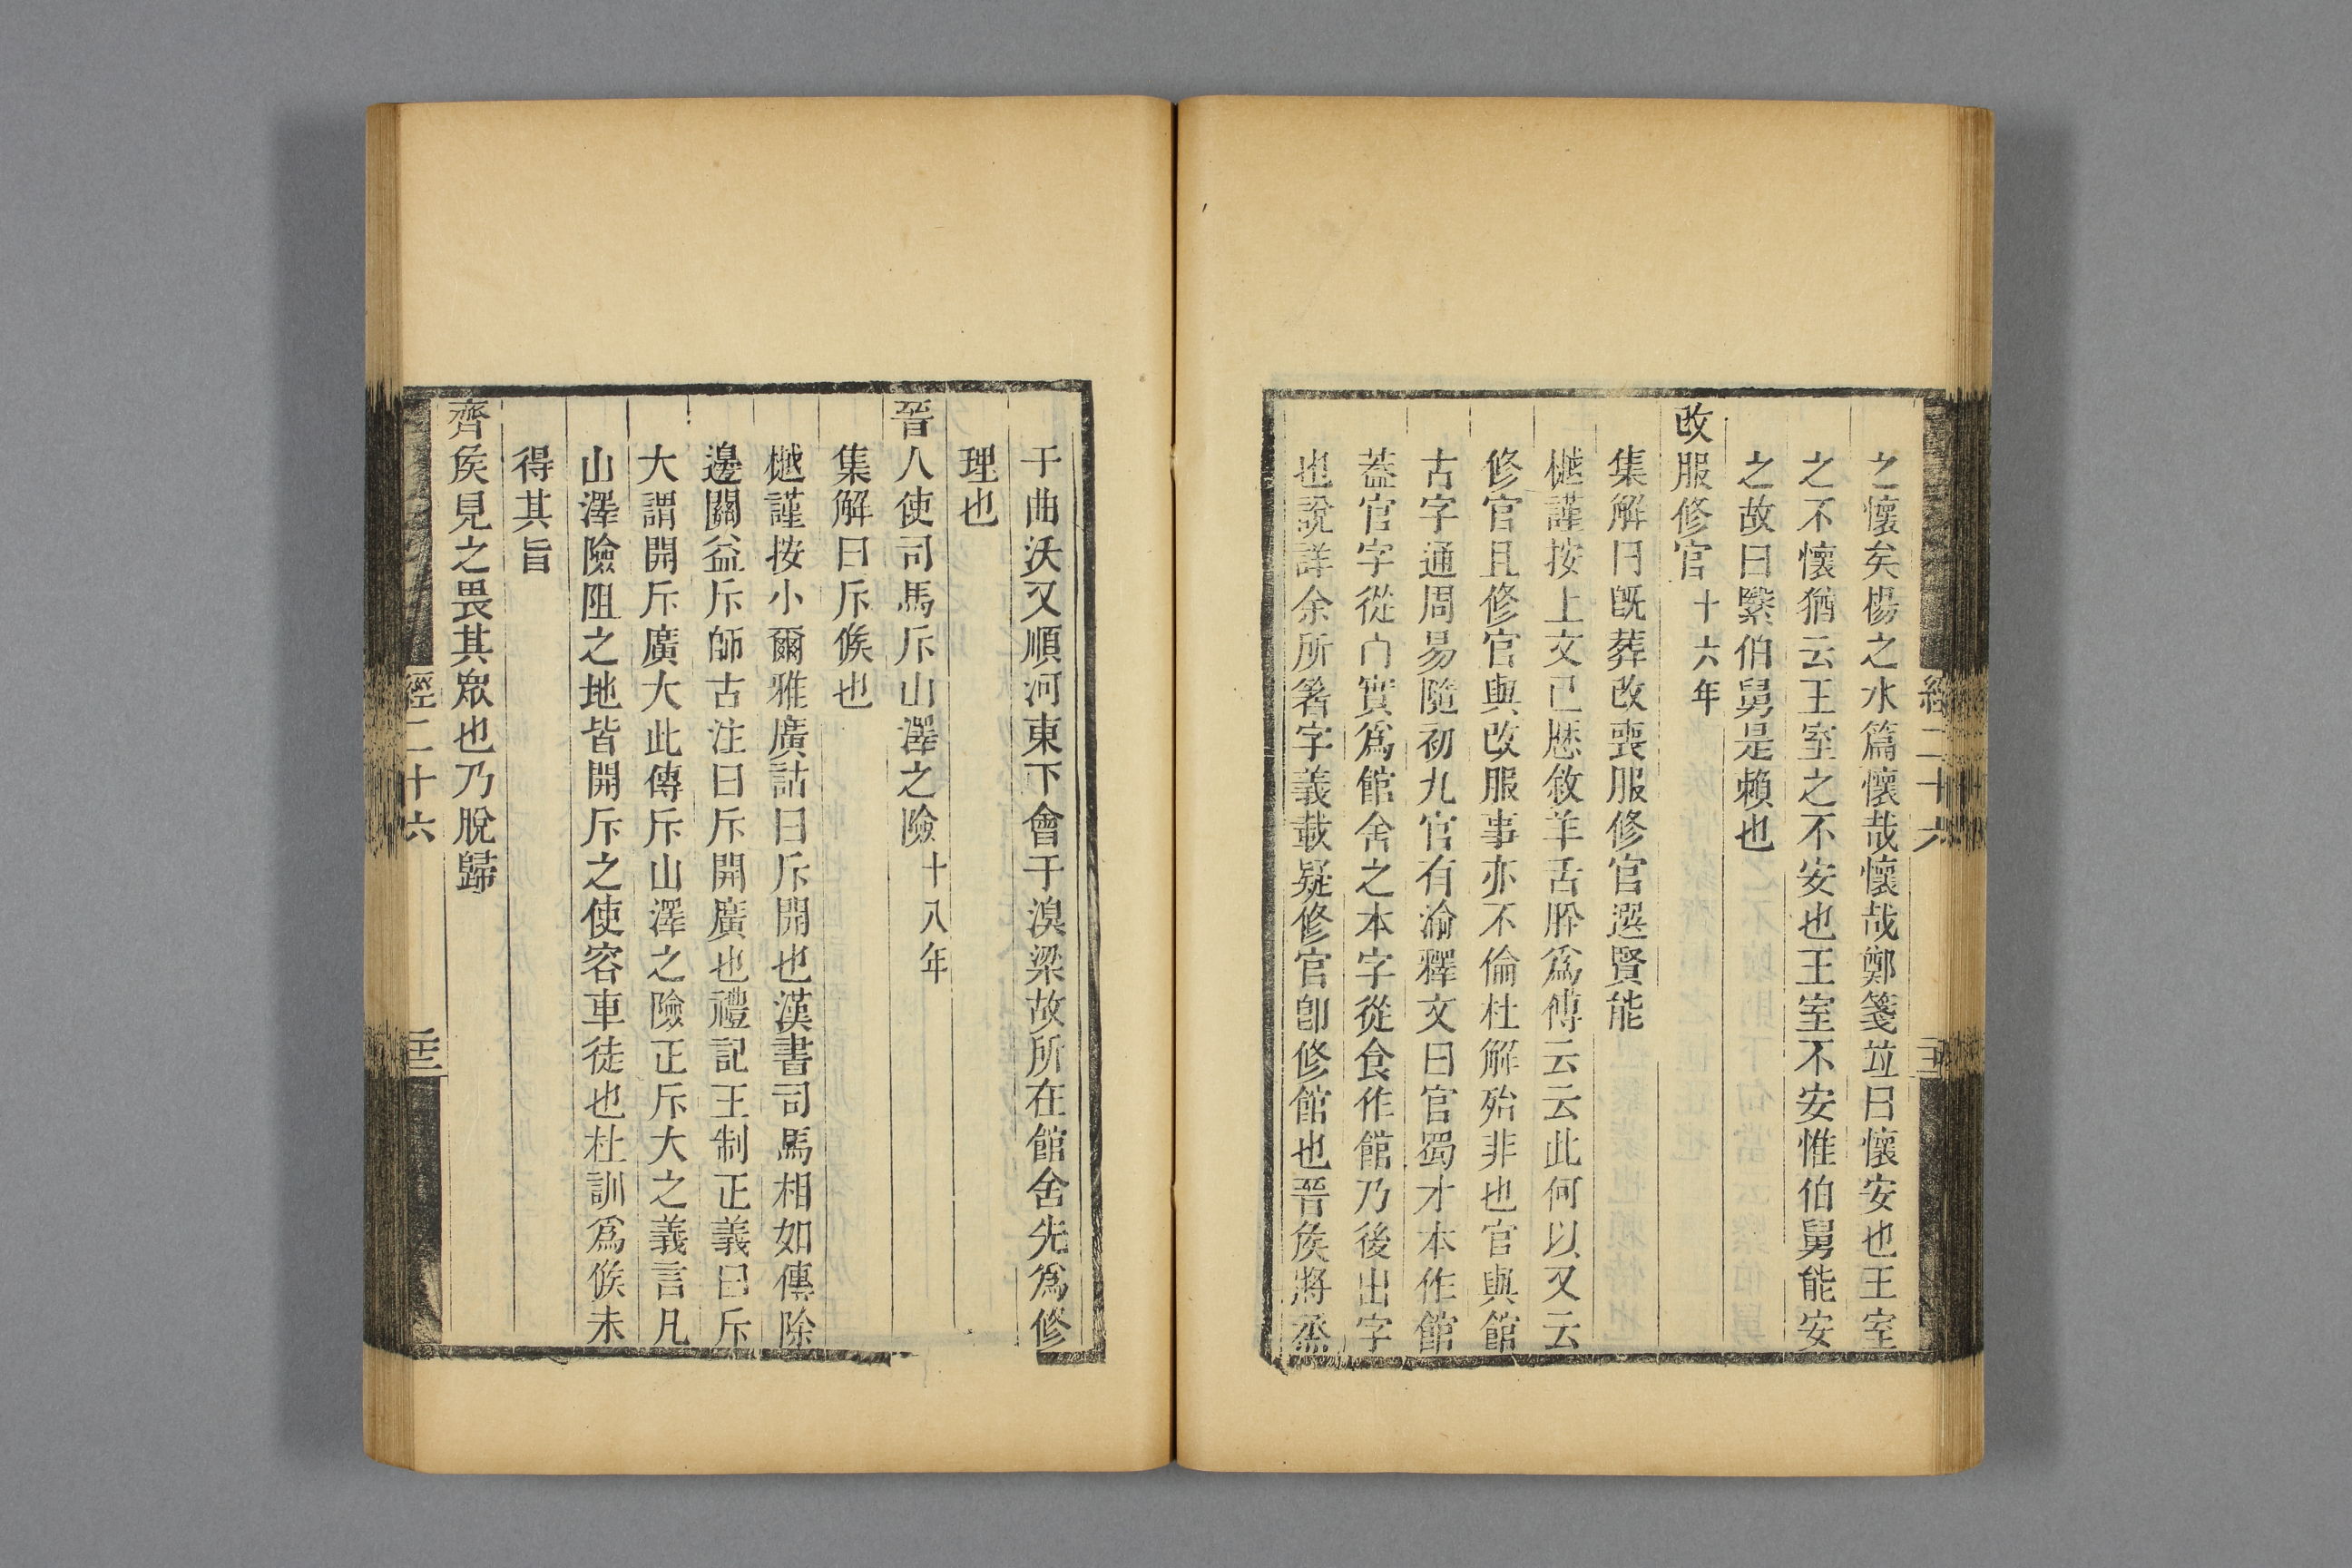 之懷矣楊之水篇懷哉懷哉鄭箋竝曰懷安也王室
之不懷猶云王室之不安也王室不安惟伯舅能安
之故曰繄伯舅是賴也
改服修官十六年
集解曰旣葬改喪服修官選賢能
樾謹按上文已歷敘羊舌肸爲傅云云此何以又云
修官且修官與改服事亦不倫杜解殆非也官與館
古字通周易隨初九官有渝釋文曰官蜀才本作館
葢官字從宀實爲館舍之本字從食作館乃後出字
也說詳余所箸字義載疑修官卽修館也晉侯將烝
于曲沃又順河東下會于湨梁故所在館舍先爲修
理也
晉人使司馬斥山澤之險十八年
集解曰斥候也
樾謹按小爾雅廣詁曰斥開也漢書司馬相如傳除
邊關益斥師古注曰斥開廣也禮記王制正義曰斥
大謂開斥廣大此傳斥山澤之險正斥大之義言凡
山澤險阻之地皆開斥之使容車徒也杜訓爲候未
得其旨
齊侯見之畏其眾也乃脫歸
經二十六